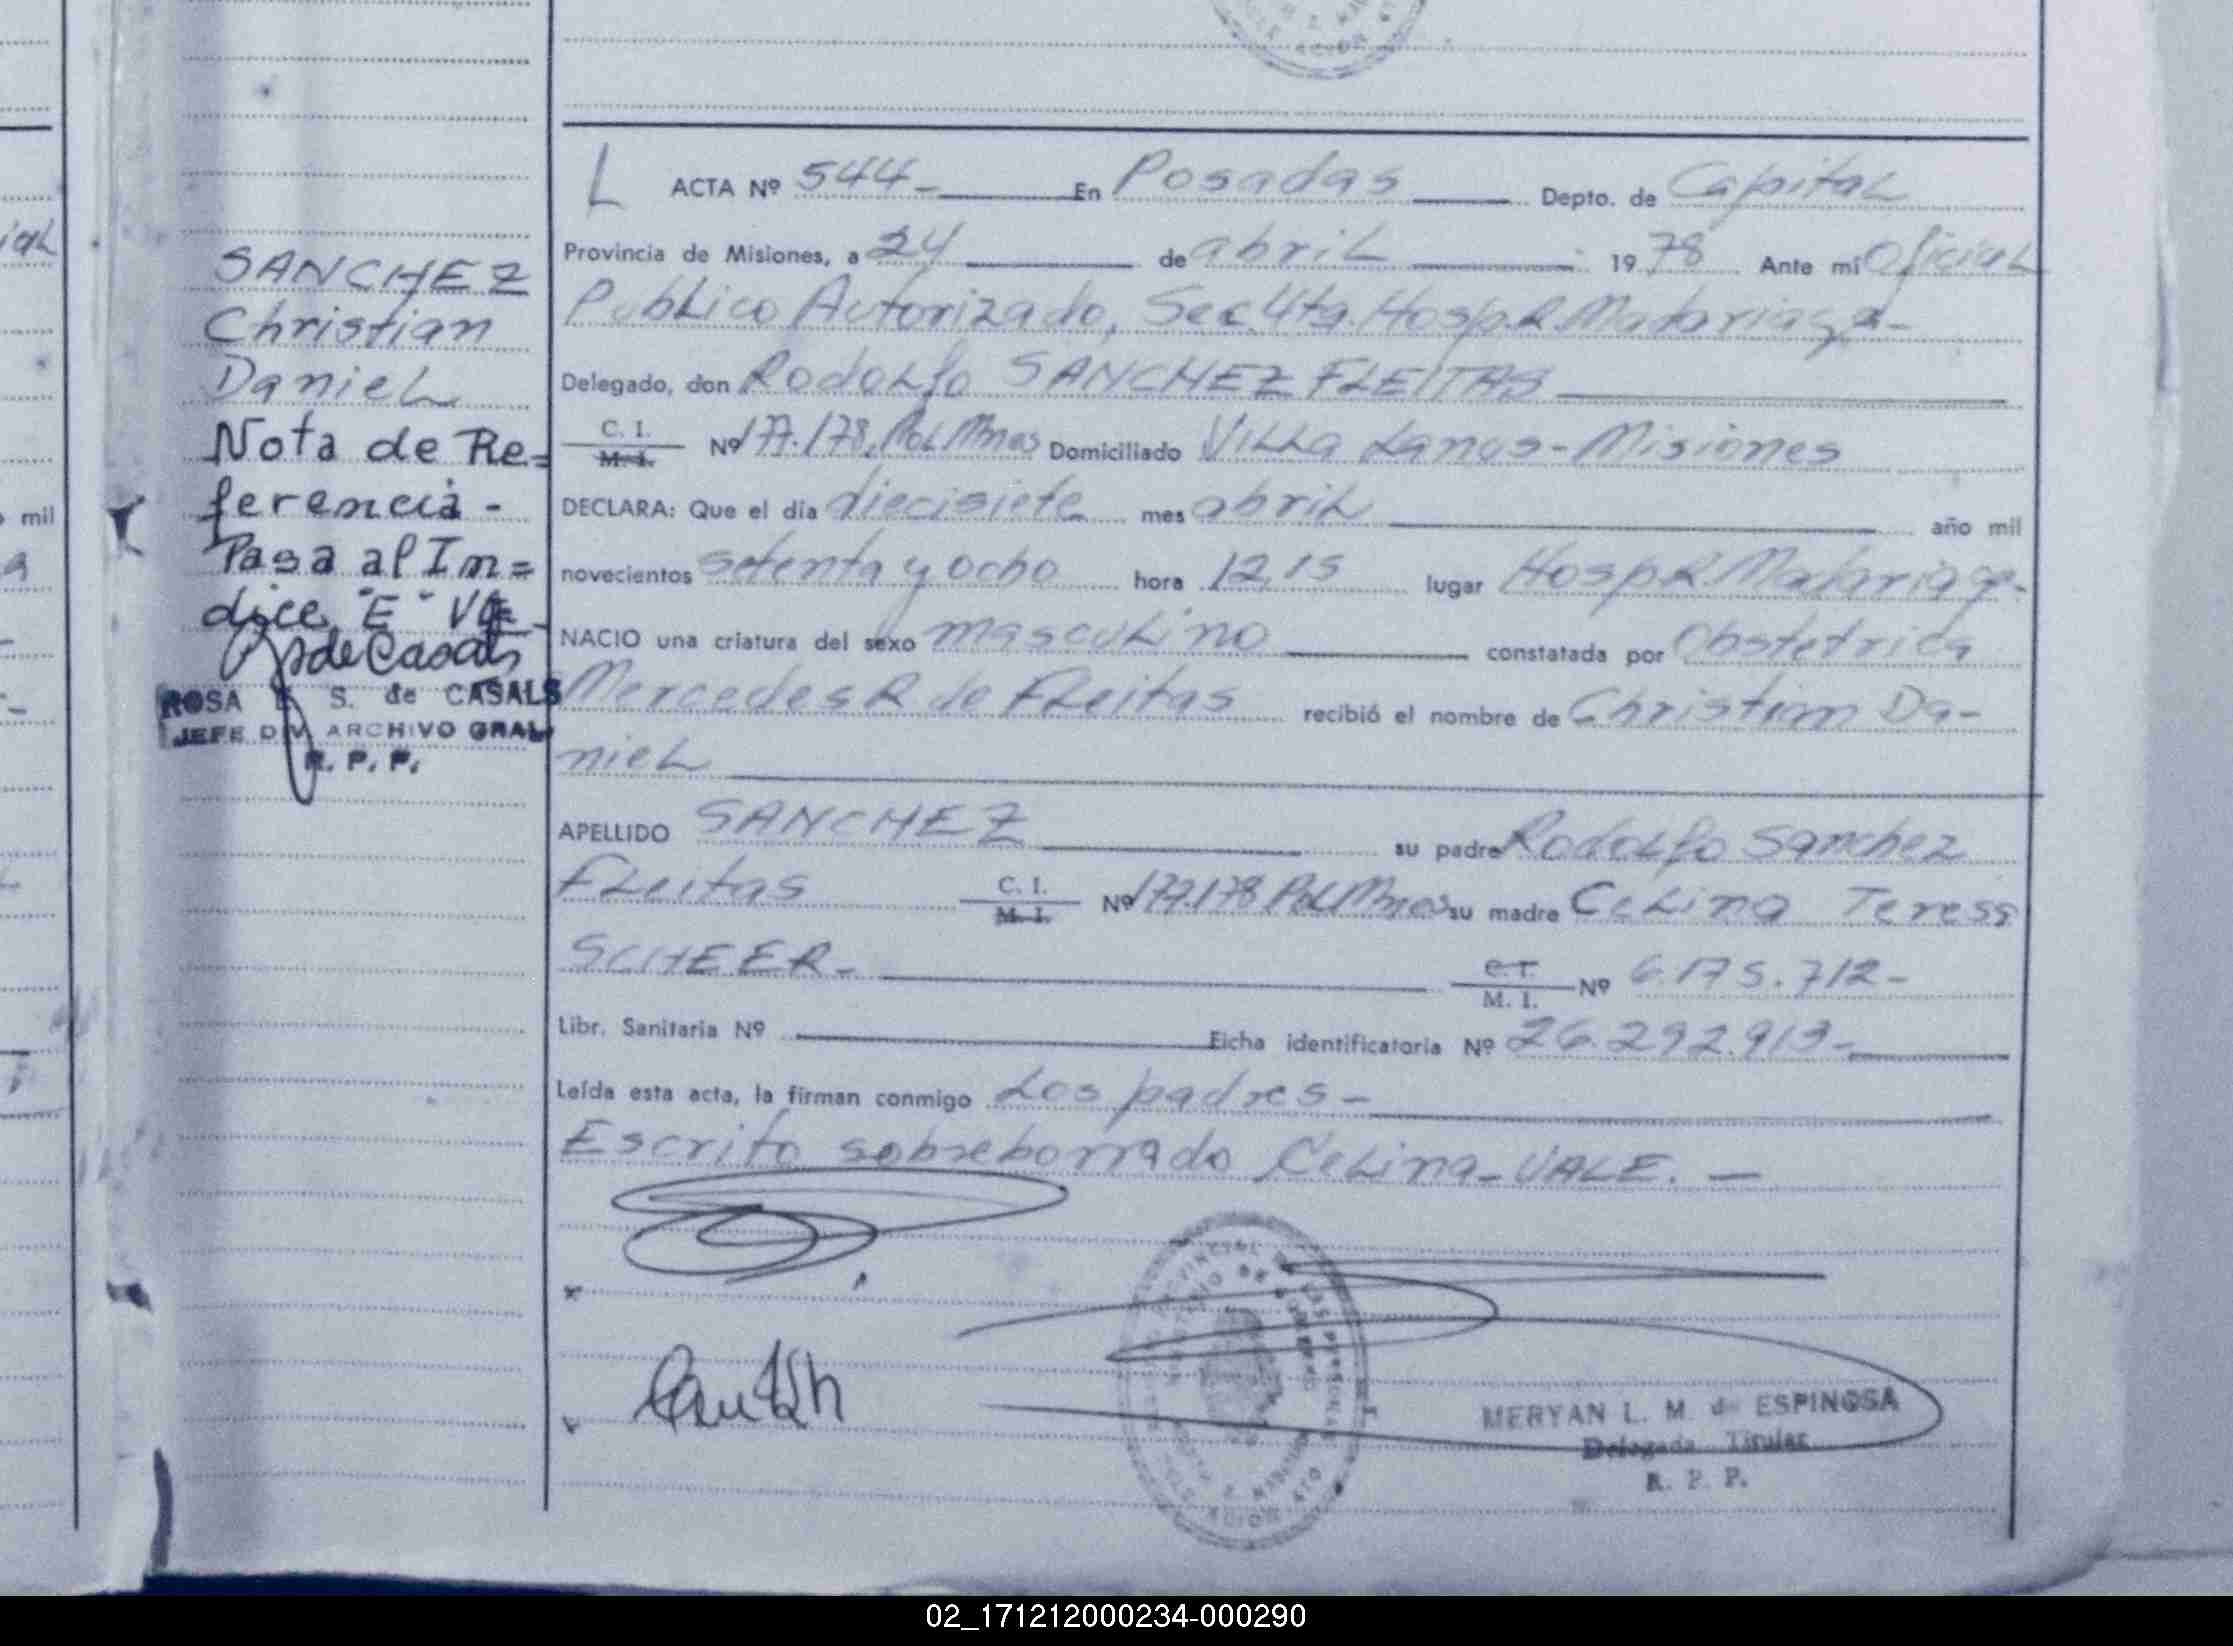 SANCHEZ
Christian
Daniel
Nota de Re=
ferencia -
Pasa al In=
dice "E"
de Casals
ROSA E. S. de CASALS
JEFE DIV. ARCHIVO GRAL.
R. P. P.
L ACTA Nº 544- En Posadas Depto. de Capital
Provincia de Misiones, a 24 de abril 1978 Ante mi Oficial
Publico Autorizado, Sec. 4ta. Hosp. R. Madariaga-
Delegado, don Rodolfo SANCHEZ FLEITAS
C. I. M. I. Nº 177.178, Pol Mnes Domiciliado Villa Lanus - Misiones
DECLARA: Que el día diecisiete mes abril año mil
novecientos setenta y ocho hora 12,15 lugar Hosp R. Madariaga-
NACIO una criatura del sexo masculino constatada por Obstetrica
Mercedes R de Fleitas recibió el nombre de Christian Da-
niel
APELLIDO SANCHEZ su padre Rodolfo Sanchez
Fleitas C. I. M. I. Nº 177.178 Pol Mnes su madre Celina Teresa
SCHEER- C. I. M. I. Nº 6.175.712-
Libr. Sanitaria Nº Ficha identificatoria Nº 26.292.913-
Leída esta acta, la firman conmigo Los padres-
Escrito sobreborrado Celina- VALE. -
MERYAN L. M. de ESPINOSA
Delegada Titular
R. P. P.
02_171212000234-000290